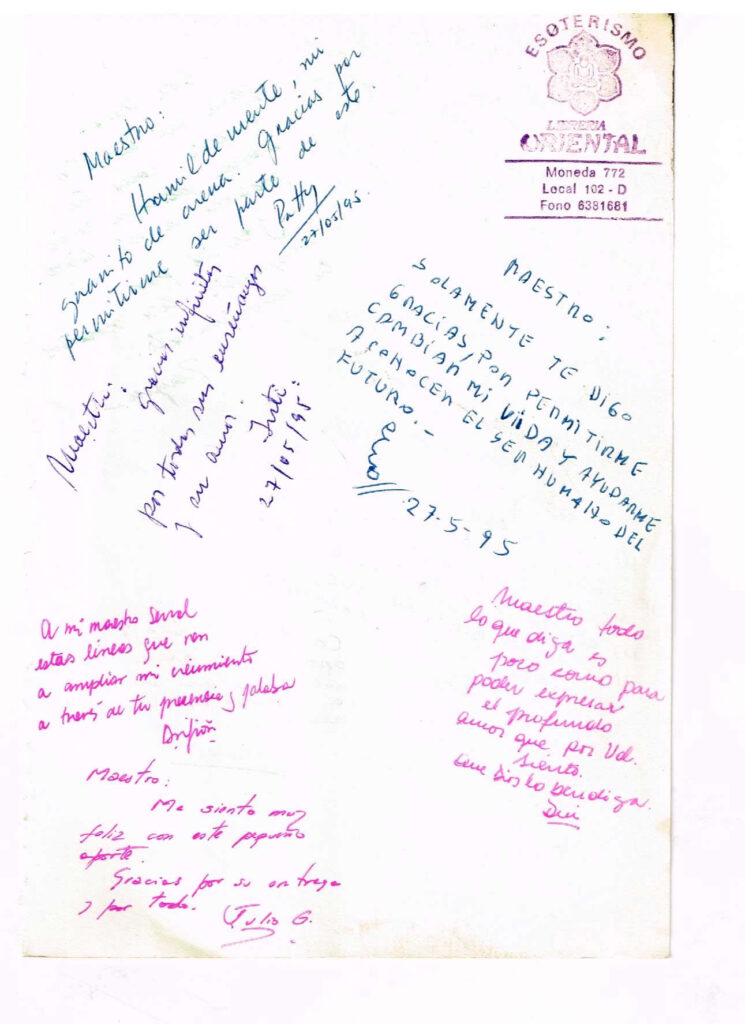 ESOTERISMO
LIBRERIA
ORIENTAL
Moneda 772
Local 102 - D
Fono 6381681
Maestro:
Humildemente, mi
granito de arena. Gracias por
permitirme ser parte de este.
Patty
27/05/95
Maestro:
gracias infinitas
por todas sus enseñanzas
y su amor.
27/05/95
MAESTRO:
SOLAMENTE TE DIGO
GRACIAS, POR PERMITIRME
CAMBIAR MI VIDA Y AYUDARME
A CONOCER EL SER HUMANO DEL
FUTURO.-
27-5-95
A mi maestro
estas líneas que van
a ampliar mi crecimiento
a través de tu presencia y palabra
Maestro todo
lo que diga es
poco como para
poder expresar
el profundo
amor que por Ud.
siento.
Que Dios lo bendiga.
Maestro:
Me siento muy
feliz con este pequeño
aporte.
Gracias por su entrega
y por todo. Julio G.